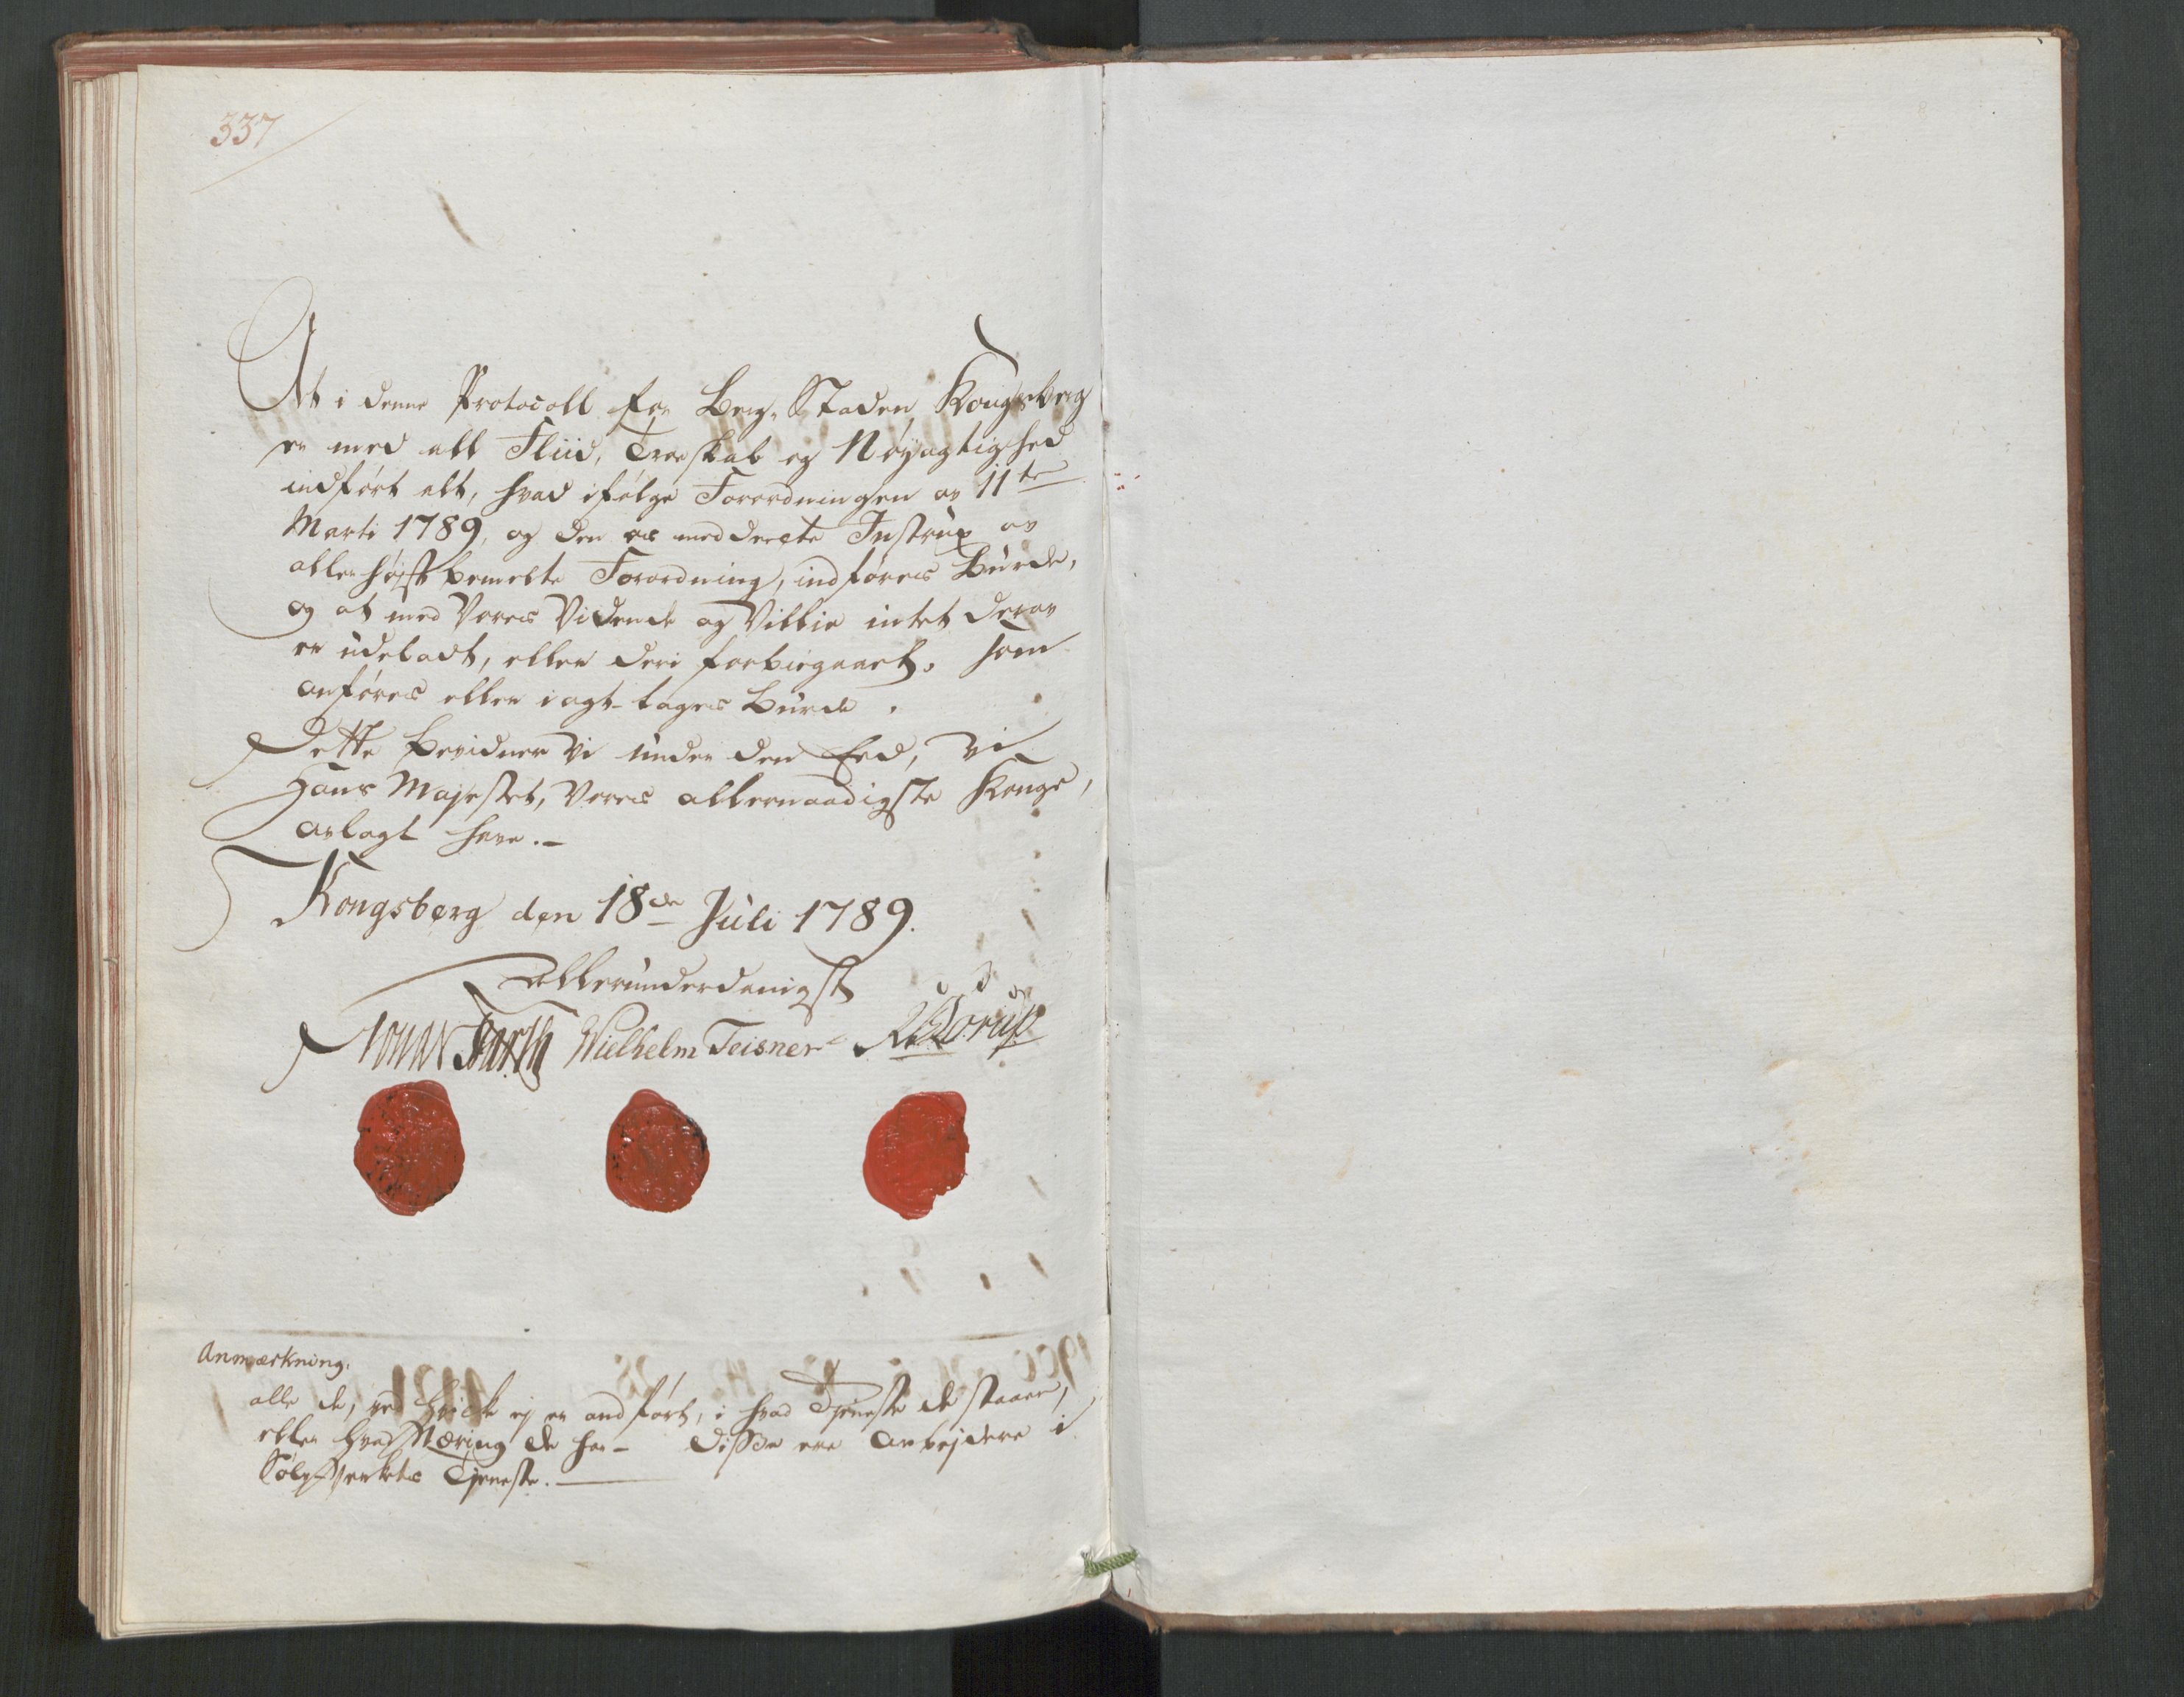 337
At i denne Protocoll for Berg-Staden Kongsberg
er med all Fliid, Troeskab og Nøyagtighed
indført alt, hvad ifølge Forordningen av 11te
Marti 1789, og den os meddeelte Instrux av
allerhøjstbemelte Forordning, indføres Burde,
og at med Vores Vidende og Villie intet derav
er udeladt, eller deri forbiegaaet, som
anføres eller iagt-tages Burde.
Dette bevidner Vi under den Eed, Vi
Hans Majestet, Vores allernaadigste Konge,
avlagt have.-
Kongsberg den 18de Juli 1789.
allerunderdanigst
Wielhelm Teisner
Anmærkning.
alle de, ved hvilke ej er andført, i hvad Tjeneste de staaer,
eller hvad Næring de har - disse ere Arbejdere i
Sølv-Verkets Tjeneste.